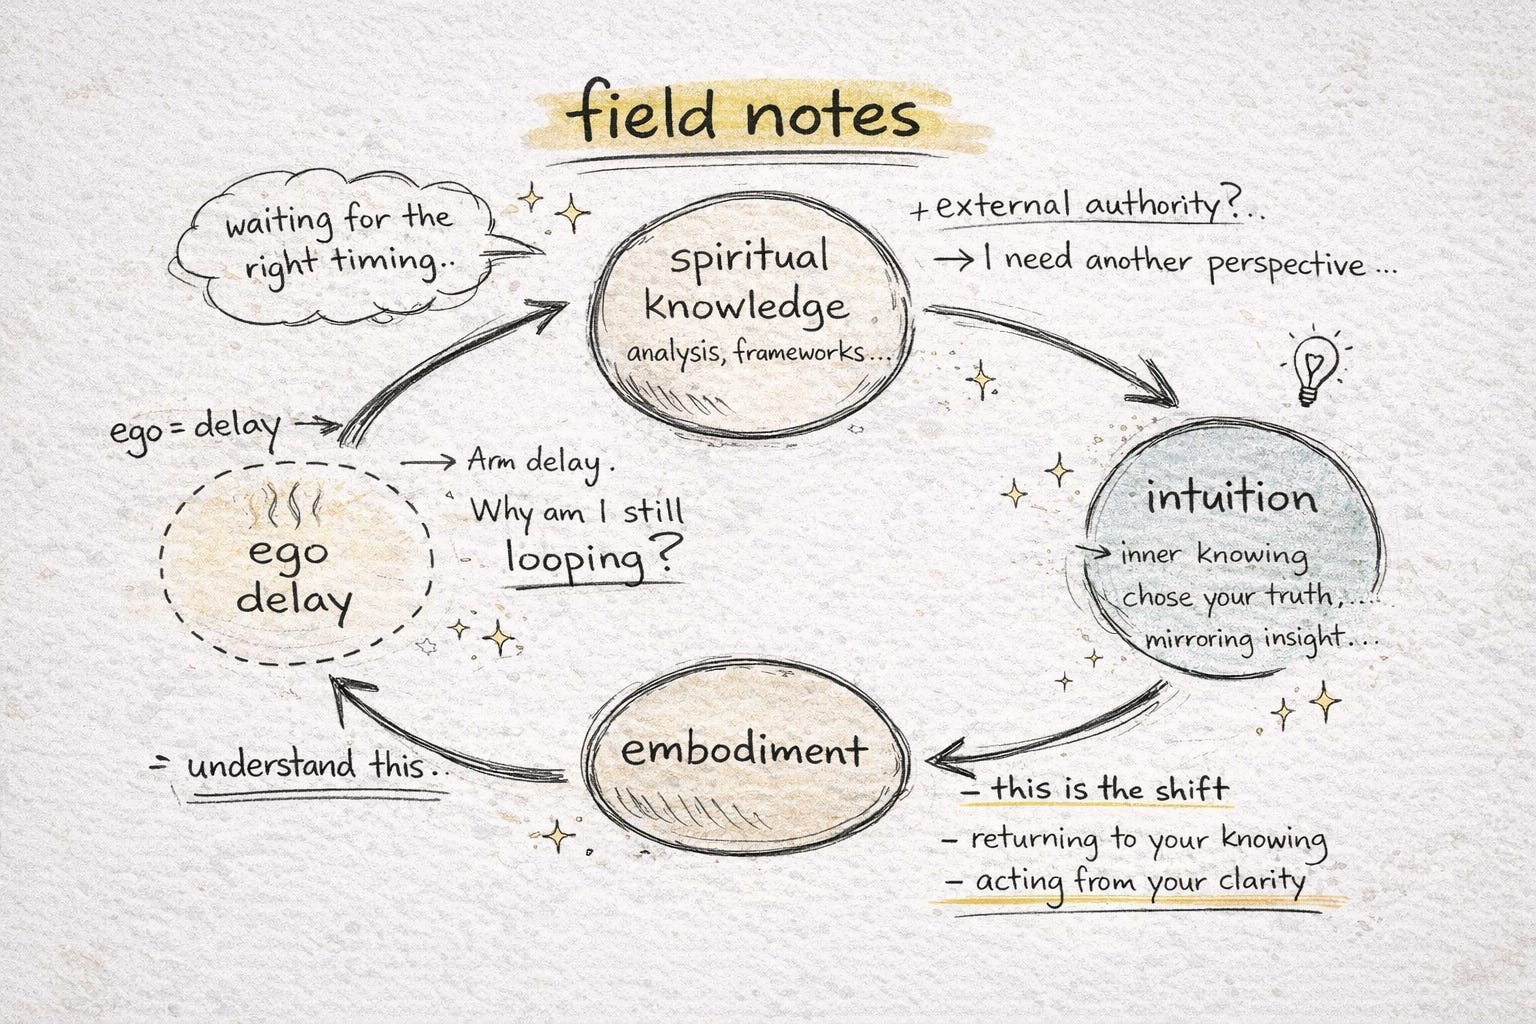 field notes
waiting for the
right timing..
spiritual
knowledge
analysis, frameworks...
+ external authority?..
→ I need another perspective ...
ego = delay →
→ Arm delay.
Why am I still
looping?
ego
delay
intuition
→ inner knowing
chose your truth,....
mirroring insight...
embodiment
= understand this..
- this is the shift
- returning to your knowing
- acting from your clarity